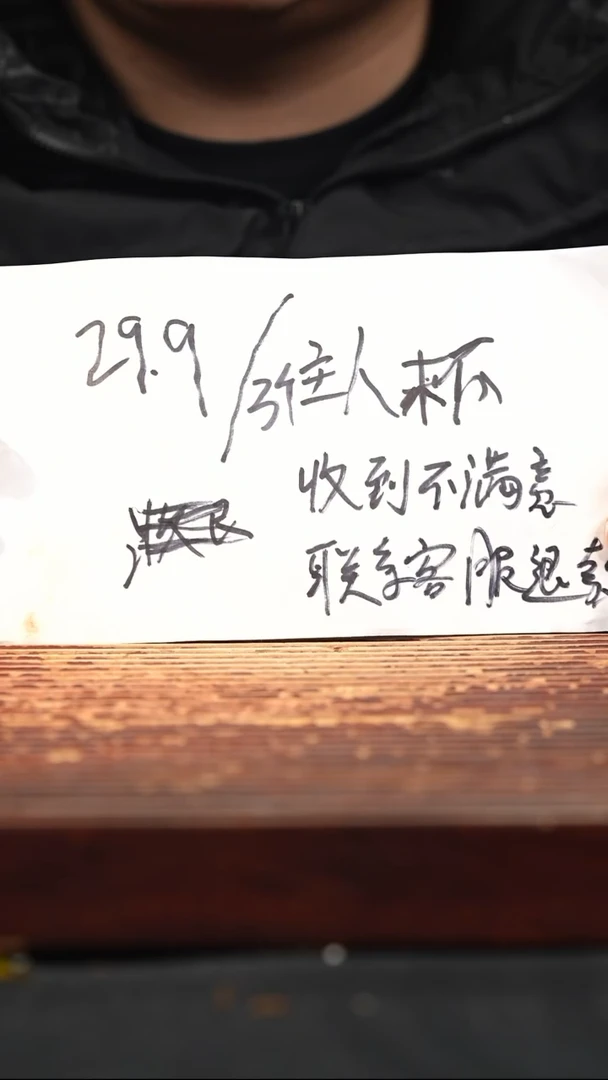 29.9/3个主人杯
收到不满意
联系客服退款